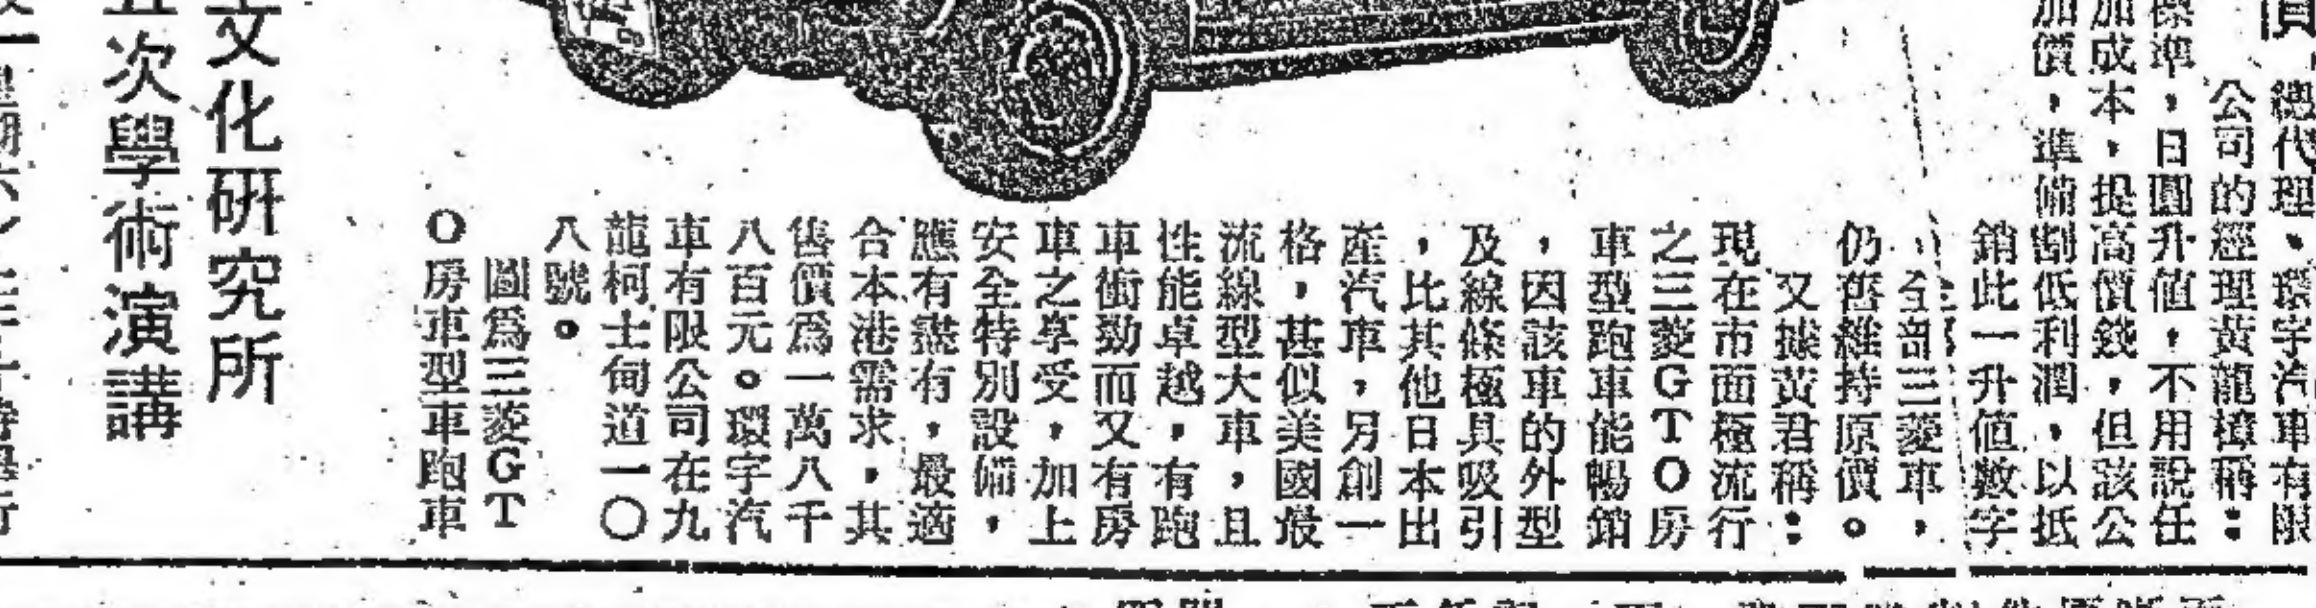 價
總代理、環宇汽車有限
公司的經理黃龍樟稱：
標準，日圓升值，不用說任
加成本，提高價錢，但該公
加價，準備割低利潤，以抵
銷此一升值數字
，全部三菱車，
仍舊維持原價。
又據黃君稱：
現在市面極流行
之三菱GTO房
車型跑車能暢銷
，因該車的外型
及線條極具吸引
，比其他日本出
產汽車，另創一
格，甚似美國最
流線型大車，且
性能卓越，有跑
車衝勁而又有房
車之享受，加上
安全特別設備，
應有盡有，最適
合本港需求，其
售價為一萬八千
八百元。環宇汽
車有限公司在九
龍柯士甸道一〇
八號。
圖為三菱GT
O房車型車跑車
文化研究所
次學術演講